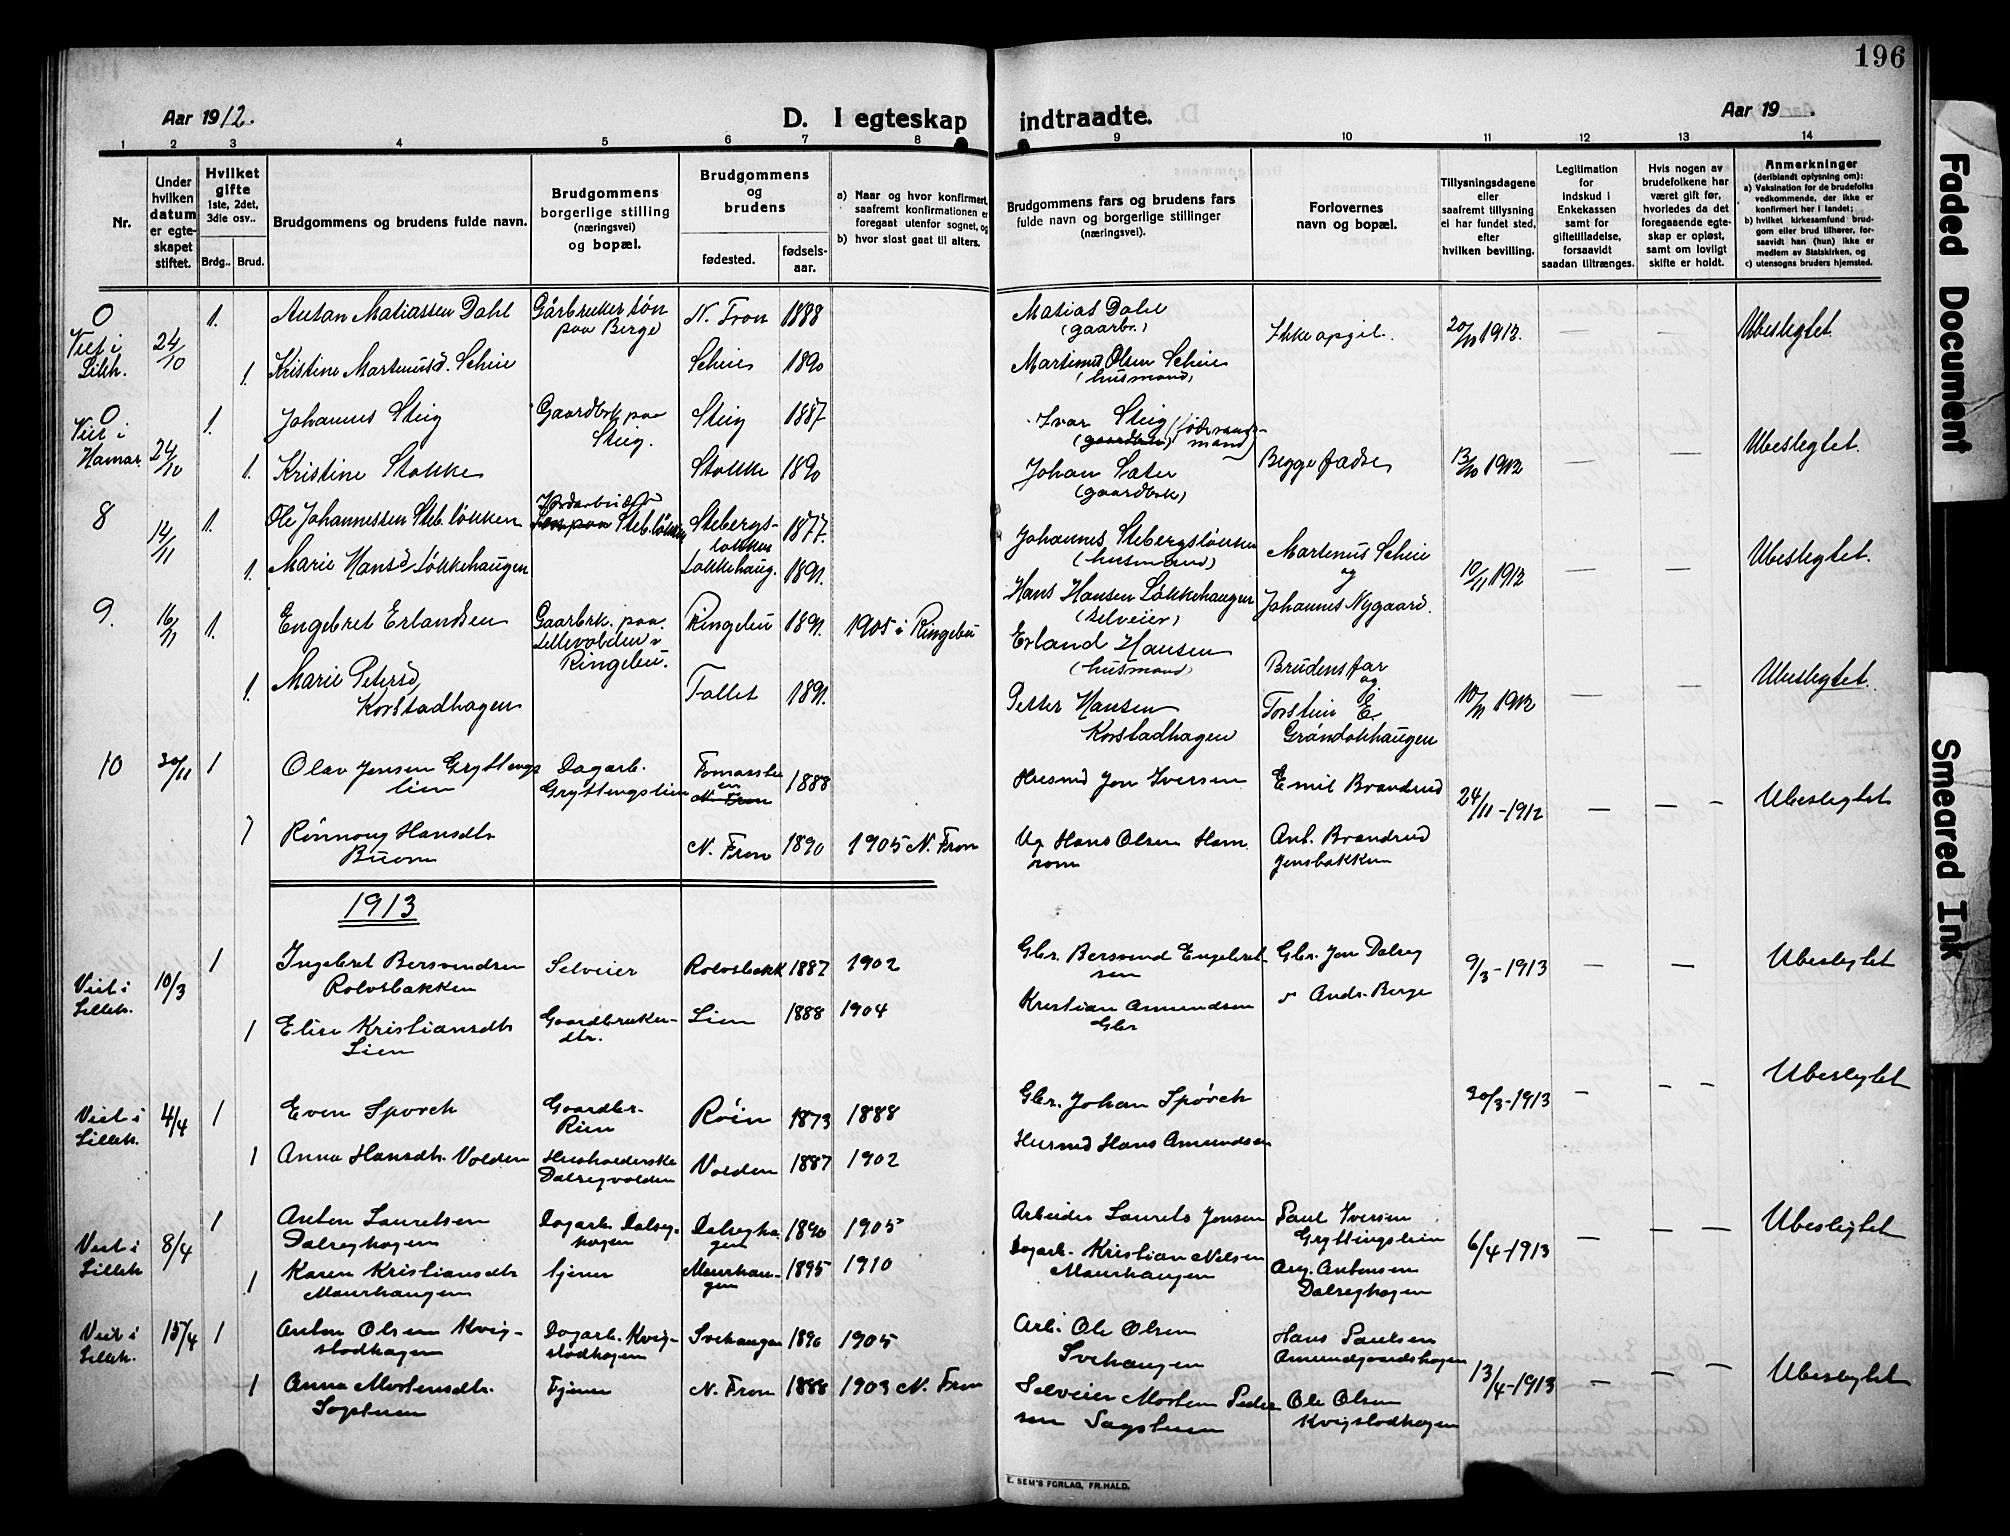 196
Aar 1912.
D. I egteskap indtraadte.
Aar 19 .
1 2 3 4 5 6 7 8 9 10 11 12 13 14
Nr.
Under hvilken datum er egteskapet stiftet.
Hvilket gifte 1ste, 2det, 3die osv..
Brdg.. Brud.
Brudgommens og brudens fulde navn.
Brudgommens borgerlige stilling (næringsvei) og bopæl.
Brudgommens og brudens
fødested. fødsels-aar.
a) Naar og hvor konfirmert, saafremt konfirmationen er foregaat utenfor sognet, og
b) hvor sidst gaat til alters.
Brudgommens fars og brudens fars fulde navn og borgerlige stillinger (næringsvei).
Forlovernes navn og bopæl.
Tillysningsdagene eller saafremt tillysning ei har fundet sted, efter hvilken bevilling.
Legitimation for indskud i Enkekassen samt for giftetilladelse, forsaavidt saadan tiltrænges.
Hvis nogen av brudefolkene har været gift før, hvorledes da det foregaaende egteskap er opløst, samt om lovligt skifte er holdt.
Anmerkninger (deriblandt oplysning om):
a) Vaksination for de brudefolks vedkommende, der ikke er konfirmert her i landet;
b) hvilket kirkesamfund brudgom eller brud tilhører, forsaavidt han (hun) ikke er medlem av Statskirken, og
c) utensogns bruders hjemsted.
0 Viet i Lilleh. 24/10 1. Anton Matiassen Dahl Gårbruker søn paa Berge N. Fron 1888 Matias Dahl (gaarbr.) Ikke opgit. 20/10 1912. Ubeslegtet.
1. Kristine Martinusd. Scheie Scheie 1890 Martinus Olsen Scheie (husmand)
0 Viet i Hamar. 24/10 1. Johannes Steig Gaardbrk paa Steig. Steig 1887 Ivar Steig (føderaadsmand) Begge fædre 13/10 1912 — — Ubeslegtet.
1. Kristine Stokke Stokke 1890 Johan Sæter (gaardbrk)
8 14/11 1. Ole Johannessen Steb.løkken Jordarbeider Steb.løkken Stebergsløkken 1877. Johannes Stebergsløkken (husmand) Martinus Scheie og 10/11 1912 — — Ubeslegtet.
1. Marie Hansd. Løkkehaugen Løkkehaug. 1891. Hans Hansen Løkkehaugen (selveier) Johannes Nygaard.
9. 16/11 1. Engebret Erlandsen Gaarbrk. paa Lillevolden i Ringebu. Ringebu 1891. 1905 i Ringebu Erland Hansen (husmand) Brudens far og 10/11 1912 — — Ubeslegtet.
1. Marie Petersd. Korstadhagen Fallet 1891. Petter Hansen Korstadhagen Torstein E. Grøndokhaugen
10 30/11 1 Olav Jonsen Gryttingslien Dagarb. Gryttingslien N. Fron 1888 Husmd Jon Iversen Emil Brandrud 24/11-1912 — — - Ubeslegtet
1 Rønnoug Hansdtr. Buom N. Fron 1890 1905 N. Fron Hans Olsen Ant. Brandrud Jensbakken
1913
Viet i Lilleh. 10/3 1 Ingebret Bersvendsen Rolvsbakken Selveier Rolvsbakk 1887 1902 Gbr. Bersvend Engebretsen Gbr. Jon Dalseg 9/3-1913 — — Ubeslegtet
1 Elise Kristiansdtr Lien Gaardbrukerdtr. Lien 1888 1904 Kristian Amundsen Gbr Andr. Berge
Viet i Lilleh. 4/4 1 Even Spørch Gaardbr. Røin 1873 1888 Gbr. Johan Spørch 30/3-1913 — - - Ubeslegtet
1 Anna Hansdtr. Volden Husholderske Dalsegvolden Volden 1887 1902 Husmd Hans Amundsen
Viet i Lilleh 8/4 1 Anton Lauritsen Dalseghagen Dagarb. Dalseghagen Dalseghagen 1890 1905 Arbeider Laurits Jonsen Paul Iversen Gryttingslien 6/4-1913 — — — Ubeslegtet
1 Karen Kristiansdtr Maurhaugen tjener Maurhaugen 1895 1910 Dagarb. Kristian Nilsen Maurhaugen Arg. Antonsen Dalseghagen
Viet i Lilleh. 15/4 1 Anton Olsen Kvigstadhagen Dagarb. Kvigstadhagen Svehaugen 1890 1905 Arb. Ole Olsen Svehaugen Hans Paulsen Amundgaardshagen 13/4-1913 — — - Ubeslegtet
1 Anna Mortensdtr. Sagstuen Tjener N. Fron 1888 1903 N. Fron Selveier Morten Pedersen Sagstuen Ole Olsen Kvigstadhagen
E. SEM'S FORLAG, FR.HALD.
Faded Document
Smeared Ink